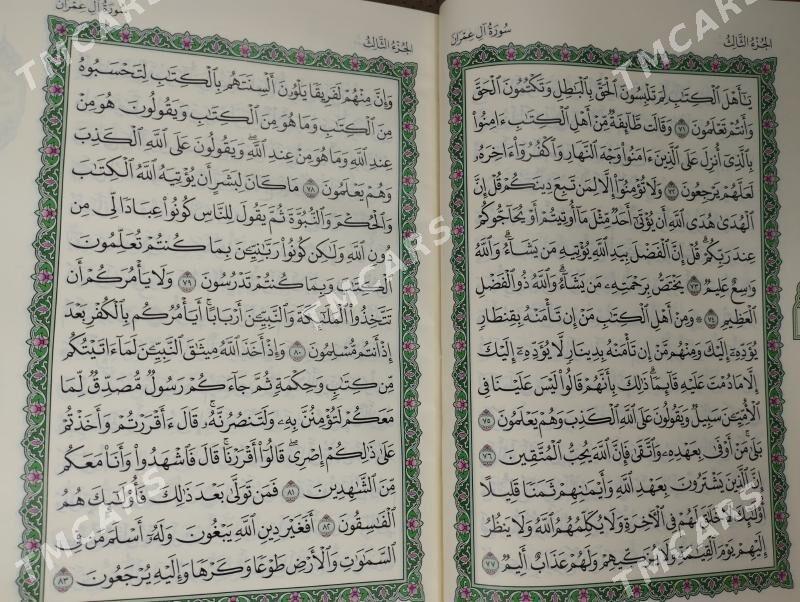 سُورَةُ آلِ عِمْرَان
الجُزْءُ الثَّالِثُ
يَٰٓأَهۡلَ ٱلۡكِتَٰبِ لِمَ تَلۡبِسُونَ ٱلۡحَقَّ بِٱلۡبَٰطِلِ وَتَكۡتُمُونَ ٱلۡحَقَّ
وَأَنتُمۡ تَعۡلَمُونَ ٧١ وَقَالَت طَّآئِفَةٞ مِّنۡ أَهۡلِ ٱلۡكِتَٰبِ ءَامِنُواْ
بِٱلَّذِيٓ أُنزِلَ عَلَى ٱلَّذِينَ ءَامَنُواْ وَجۡهَ ٱلنَّهَارِ وَٱكۡفُرُوٓاْ ءَاخِرَهُۥ
لَعَلَّهُمۡ يَرۡجِعُونَ ٧٢ وَلَا تُؤۡمِنُوٓاْ إِلَّا لِمَن تَبِعَ دِينَكُمۡ قُلۡ إِنَّ
ٱلۡهُدَىٰ هُدَى ٱللَّهِ أَن يُؤۡتَىٰٓ أَحَدٞ مِّثۡلَ مَآ أُوتِيتُمۡ أَوۡ يُحَآجُّوكُمۡ
عِندَ رَبِّكُمۡۗ قُلۡ إِنَّ ٱلۡفَضۡلَ بِيَدِ ٱللَّهِ يُؤۡتِيهِ مَن يَشَآءُۗ وَٱللَّهُ
وَٰسِعٌ عَلِيمٞ ٧٣ يَخۡتَصُّ بِرَحۡمَتِهِۦ مَن يَشَآءُۗ وَٱللَّهُ ذُو ٱلۡفَضۡلِ
ٱلۡعَظِيمِ ٧٤ ۞ وَمِنۡ أَهۡلِ ٱلۡكِتَٰبِ مَنۡ إِن تَأۡمَنۡهُ بِقِنطَارٖ
يُؤَدِّهِۦٓ إِلَيۡكَ وَمِنۡهُم مَّنۡ إِن تَأۡمَنۡهُ بِدِينَارٖ لَّا يُؤَدِّهِۦٓ إِلَيۡكَ
إِلَّا مَا دُمۡتَ عَلَيۡهِ قَآئِمٗاۗ ذَٰلِكَ بِأَنَّهُمۡ قَالُواْ لَيۡسَ عَلَيۡنَا فِي
ٱلۡأُمِّيِّـۧنَ سَبِيلٞ وَيَقُولُونَ عَلَى ٱللَّهِ ٱلۡكَذِبَ وَهُمۡ يَعۡلَمُونَ ٧٥
بَلَىٰۚ مَنۡ أَوۡفَىٰ بِعَهۡدِهِۦ وَٱتَّقَىٰ فَإِنَّ ٱللَّهَ يُحِبُّ ٱلۡمُتَّقِينَ ٧٦
إِنَّ ٱلَّذِينَ يَشۡتَرُونَ بِعَهۡدِ ٱللَّهِ وَأَيۡمَٰنِهِمۡ ثَمَنٗا قَلِيلًا
أُوْلَٰٓئِكَ لَا خَلَٰقَ لَهُمۡ فِي ٱلۡأٓخِرَةِ وَلَا يُكَلِّمُهُمُ ٱللَّهُ وَلَا يَنظُرُ
إِلَيۡهِمۡ يَوۡمَ ٱلۡقِيَٰمَةِ وَلَا يُزَكِّيهِمۡ وَلَهُمۡ عَذَابٌ أَلِيمٞ ٧٧
سُورَةُ آلِ عِمْرَان
الجُزْءُ الثَّالِثُ
وَإِنَّ مِنۡهُمۡ لَفَرِيقٗا يَلۡوُۥنَ أَلۡسِنَتَهُم بِٱلۡكِتَٰبِ لِتَحۡسَبُوهُ
مِنَ ٱلۡكِتَٰبِ وَمَا هُوَ مِنَ ٱلۡكِتَٰبِ وَيَقُولُونَ هُوَ مِنۡ
عِندِ ٱللَّهِ وَمَا هُوَ مِنۡ عِندِ ٱللَّهِۖ وَيَقُولُونَ عَلَى ٱللَّهِ ٱلۡكَذِبَ
وَهُمۡ يَعۡلَمُونَ ٧٨ مَا كَانَ لِبَشَرٍ أَن يُؤۡتِيَهُ ٱللَّهُ ٱلۡكِتَٰبَ
وَٱلۡحُكۡمَ وَٱلنُّبُوَّةَ ثُمَّ يَقُولَ لِلنَّاسِ كُونُواْ عِبَادٗا لِّي مِن
دُونِ ٱللَّهِ وَلَٰكِن كُونُواْ رَبَّٰنِيِّـۧنَ بِمَا كُنتُمۡ تُعَلِّمُونَ
ٱلۡكِتَٰبَ وَبِمَا كُنتُمۡ تَدۡرُسُونَ ٧٩ وَلَا يَأۡمُرَكُمۡ أَن
تَتَّخِذُواْ ٱلۡمَلَٰٓئِكَةَ وَٱلنَّبِيِّـۧنَ أَرۡبَابًاۚ أَيَأۡمُرُكُم بِٱلۡكُفۡرِ بَعۡدَ
إِذۡ أَنتُم مُّسۡلِمُونَ ٨٠ وَإِذۡ أَخَذَ ٱللَّهُ مِيثَٰقَ ٱلنَّبِيِّـۧنَ لَمَآ ءَاتَيۡتُكُم
مِّن كِتَٰبٖ وَحِكۡمَةٖ ثُمَّ جَآءَكُمۡ رَسُولٞ مُّصَدِّقٞ لِّمَا
مَعَكُمۡ لَتُؤۡمِنُنَّ بِهِۦ وَلَتَنصُرُنَّهُۥۚ قَالَ ءَأَقۡرَرۡتُمۡ وَأَخَذۡتُمۡ
عَلَىٰ ذَٰلِكُمۡ إِصۡرِيۖ قَالُوٓاْ أَقۡرَرۡنَاۚ قَالَ فَٱشۡهَدُواْ وَأَنَا۠ مَعَكُم
مِّنَ ٱلشَّٰهِدِينَ ٨١ فَمَن تَوَلَّىٰ بَعۡدَ ذَٰلِكَ فَأُوْلَٰٓئِكَ هُمُ
ٱلۡفَٰسِقُونَ ٨٢ أَفَغَيۡرَ دِينِ ٱللَّهِ يَبۡغُونَ وَلَهُۥٓ أَسۡلَمَ مَن فِي
ٱلسَّمَٰوَٰتِ وَٱلۡأَرۡضِ طَوۡعٗا وَكَرۡهٗا وَإِلَيۡهِ يُرۡجَعُونَ ٨٣
TMCARS
TMCARS
TMCARS
TMCARS
TMCARS
TMCARS
TMCARS